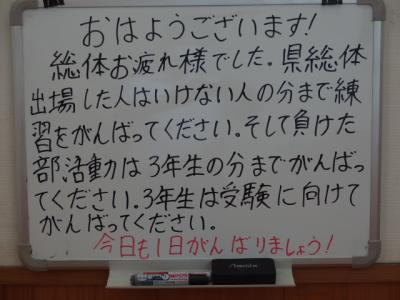 おはようございます!
総体お疲れ様でした。県総体
出場した人はいけない人の分まで練
習をがんばってください。そして負けた
部活動は3年生の分までがんばっ
てください。3年生は受験に向けて
がんばってください。
今日も1日がんばりましょう!